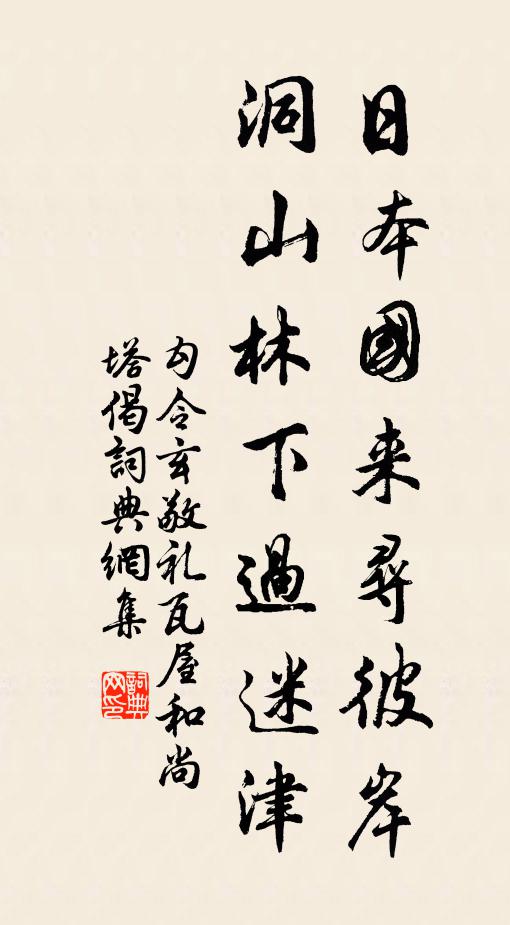 日本國来尋彼岸
洞山林下過迷津
勾令玄敬礼瓦屋和尚
塔偈詞典網集
詞典网印